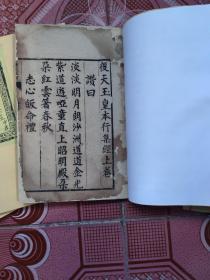 後天玉皇本行集經上卷
讚曰
淡淡明月朗沙洲道道金光
紫道遊啞童直上昭明殿朶
朶紅雲著春秋
志心皈命禮